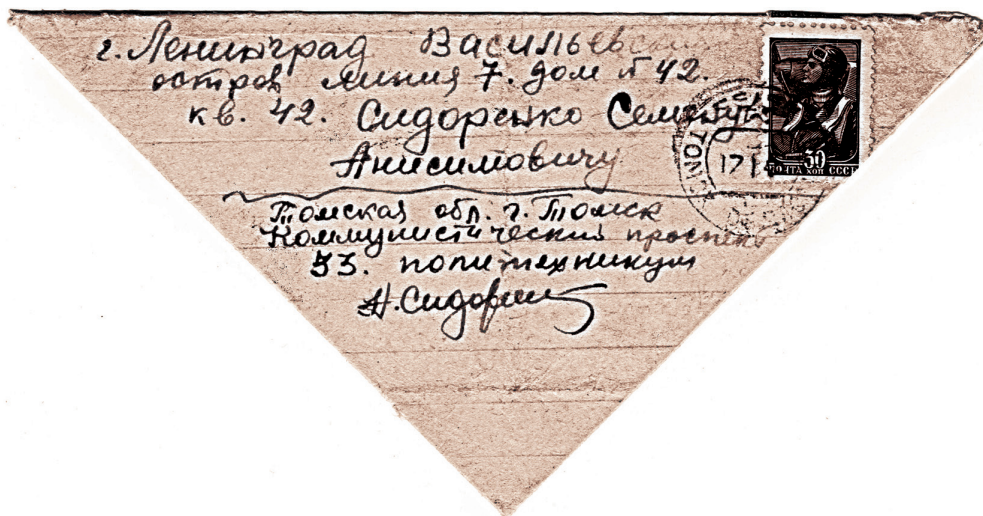 г. Ленинград Васильевский
остров линия 7. дом № 42.
кв. 42. Сидоренко Семену
Анисимовичу
Томская обл. г. Томск
Коммунистический проспект
53. политехникум
Н. Сидоренко
ТОМСК
17 1
30
ПОЧТА КОП СССР